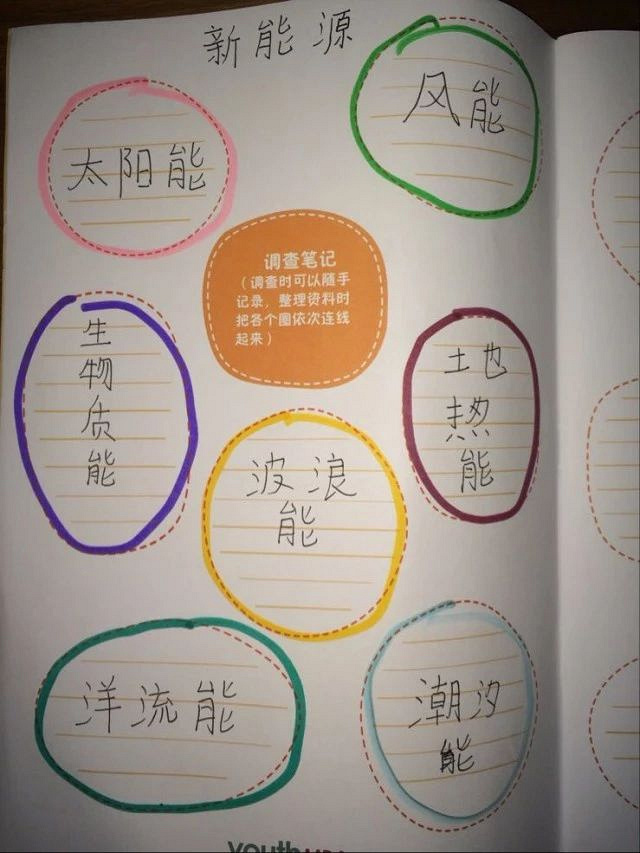 新能源
风能
太阳能
调查笔记
（调查时可以随手
记录，整理资料时
把各个圈依次连线
起来）
生
物
质
能
地
热
能
波浪
能
洋流能
潮汐
能
youth